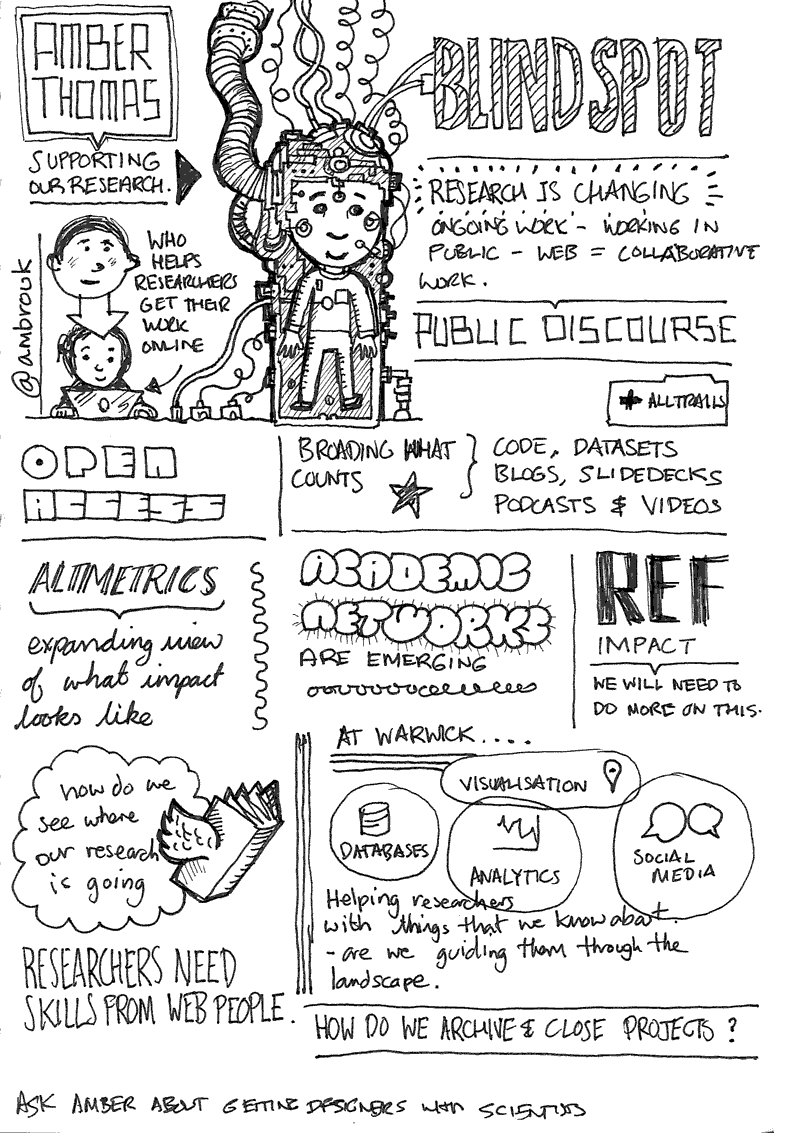 AMBER
THOMAS
SUPPORTING
OUR RESEARCH.
@ambrouk
WHO
HELPS
RESEARCHERS
GET THEIR
WORK
ONLINE
BLINDSPOT
RESEARCH IS CHANGING
ONGOING WORK - WORKING IN
PUBLIC - WEB = COLLABORATIVE
WORK.
PUBLIC DISCOURSE
+ ALLTRAILS
OPEN
ACCESS
BROADING WHAT
COUNTS
CODE, DATASETS
BLOGS, SLIDEDECKS
PODCASTS & VIDEOS
ALTMETRICS
expanding view
of what impact
looks like
ACADEMIC
NETWORKS
ARE EMERGING
REF
IMPACT
WE WILL NEED TO
DO MORE ON THIS.
how do we
see where
our research
is going
RESEARCHERS NEED
SKILLS FROM WEB PEOPLE.
AT WARWICK....
VISUALISATION
DATABASES
ANALYTICS
SOCIAL
MEDIA
Helping researchers
with things that we know about.
- are we guiding them through the
landscape.
HOW DO WE ARCHIVE & CLOSE PROJECTS ?
ASK AMBER ABOUT GETTING DESIGNERS WITH SCIENTISTS